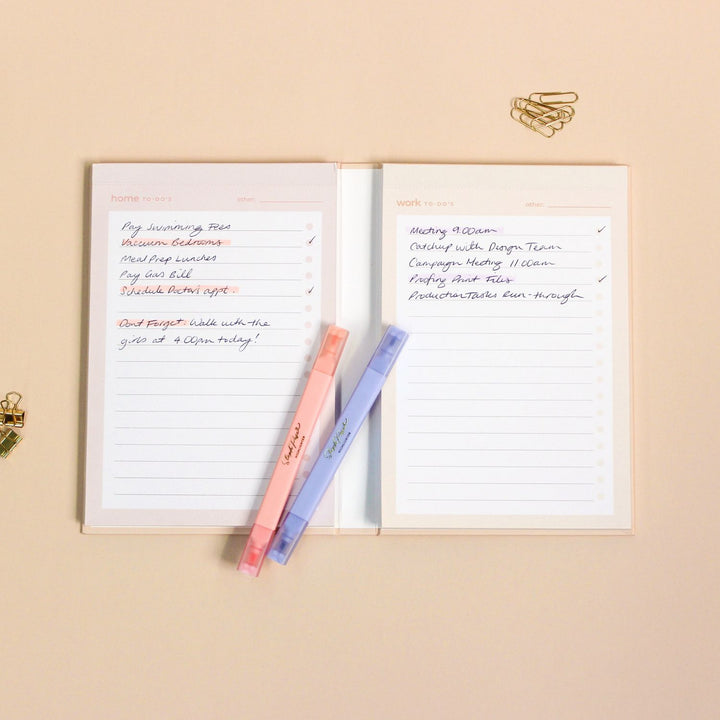 home TO-DO'S
other:
Pay Swimming Fees
Vacuum Bedrooms
Meal Prep Lunches
Pay Gas Bill
Schedule Doctors appt.
Dont Forget: Walk with the
girls at 4:00pm today!
work TO-DO'S
other:
Meeting 9:00am
Catchup with Design Team
Campaign Meeting 11:00am
Proofing Print Files
Production Tasks Run-through